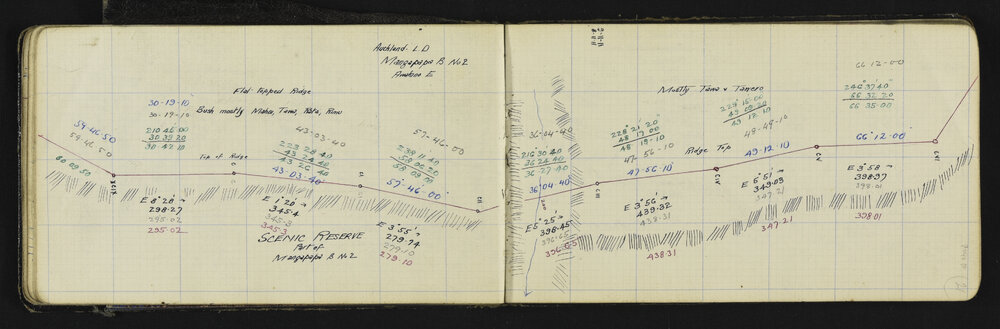 Auckland L D
Mangapapa B No2
Flat topped Ridge
30-19-10
Bush mostly Mahoe, Tawa, Rata, Rimu
30-19-10
210 46 00
30 39 20
30 42 10
59-46-50
59-46-50
Top of Ridge
43-03-40
223 28 40
43 24 40
43 26 40
43-03-40
57-46-00
238 11 40
58 09 20
58 09 00
57-46-00
E 8° 28'
298.27
295.02
295.02
E 1° 28'
345.4
345.3
345.3
E 3° 55'
279.74
279.10
279.10
SCENIC RESERVE
Part of
Mangapapa B No2
36-04-40
216 30 40
36 24 40
36 27 40
36-04-40
228 21 20
48 17 00
48 19 10
47-56-10
47-56-10
Ridge Top
Mostly Tawa & Tawero
229 15 00
49 09 20
49 12 10
48-49-10
49-12-10
66-12-00
246 37 40
66 32 20
66 35 00
66-12-00
E 5° 25'
396.45
396.65
396.65
E 3° 56'
439.32
438.31
438.31
E 6° 51'
349.09
347.21
347.21
E 3° 58'
398.97
398.01
398.01